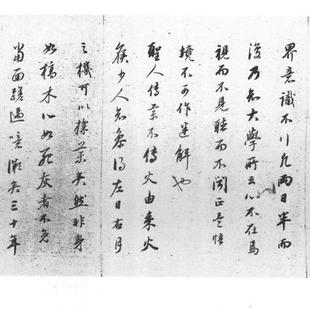 界意識不行凡兩日半而
後乃知大學所云心不在焉
視而不見聽而不聞正是悟
境不可作迷解也
聖人傳藥不傳火由來火
候少人知得左日右月
之機可以採藥矣然非身
如槁木心如死灰者不免
當面蹉過噫矣三十年